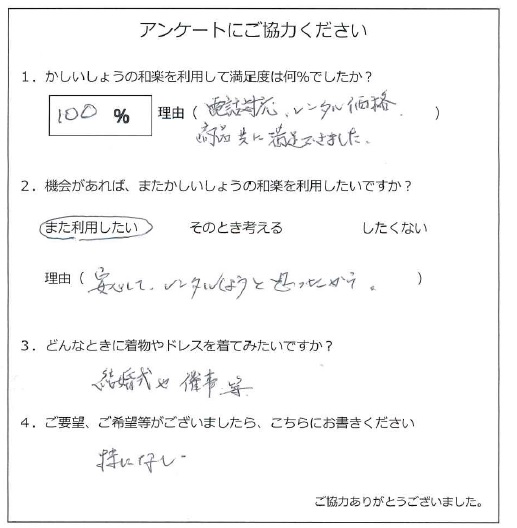 アンケートにご協力ください
１．かしいしょうの和楽を利用して満足度は何％でしたか？
100 % 理由（電話対応、レンタル価格、）
商品共に満足できました。
２．機会があれば、またかしいしょうの和楽を利用したいですか？
また利用したい そのとき考える したくない
理由（安心して、レンタルしようと思ったから。）
３．どんなときに着物やドレスを着てみたいですか？
結婚式や催事等
４．ご要望、ご希望等がございましたら、こちらにお書きください
特になし
ご協力ありがとうございました。